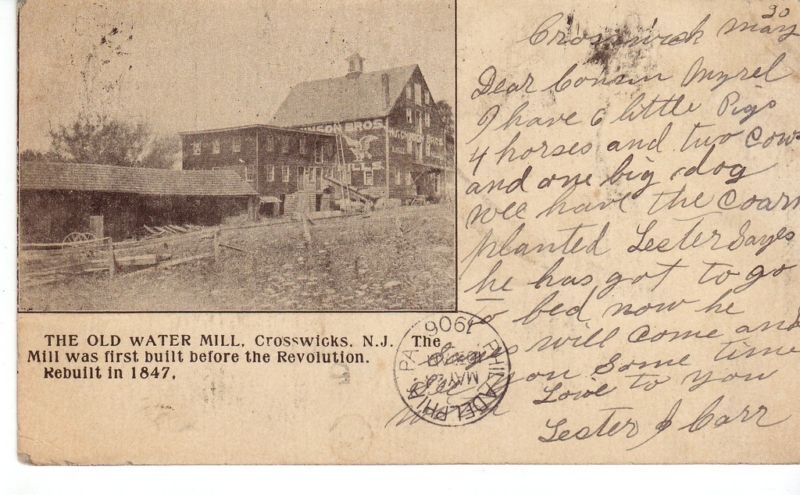 NSON BROS
THE OLD WATER MILL, Crosswicks, N.J. The
Mill was first built before the Revolution.
Rebuilt in 1847,
PHILADELPHIA PA. 1906
MAY
Crosswick May 30
Dear Cousin Myrel
I have 6 little Pigs
4 horses and two Cows
and one big dog
wee have the Coarn
planted Lester Sayes
he has got to go
to bed now he
will come and
see you Some time
Love to you
Lester J Carr